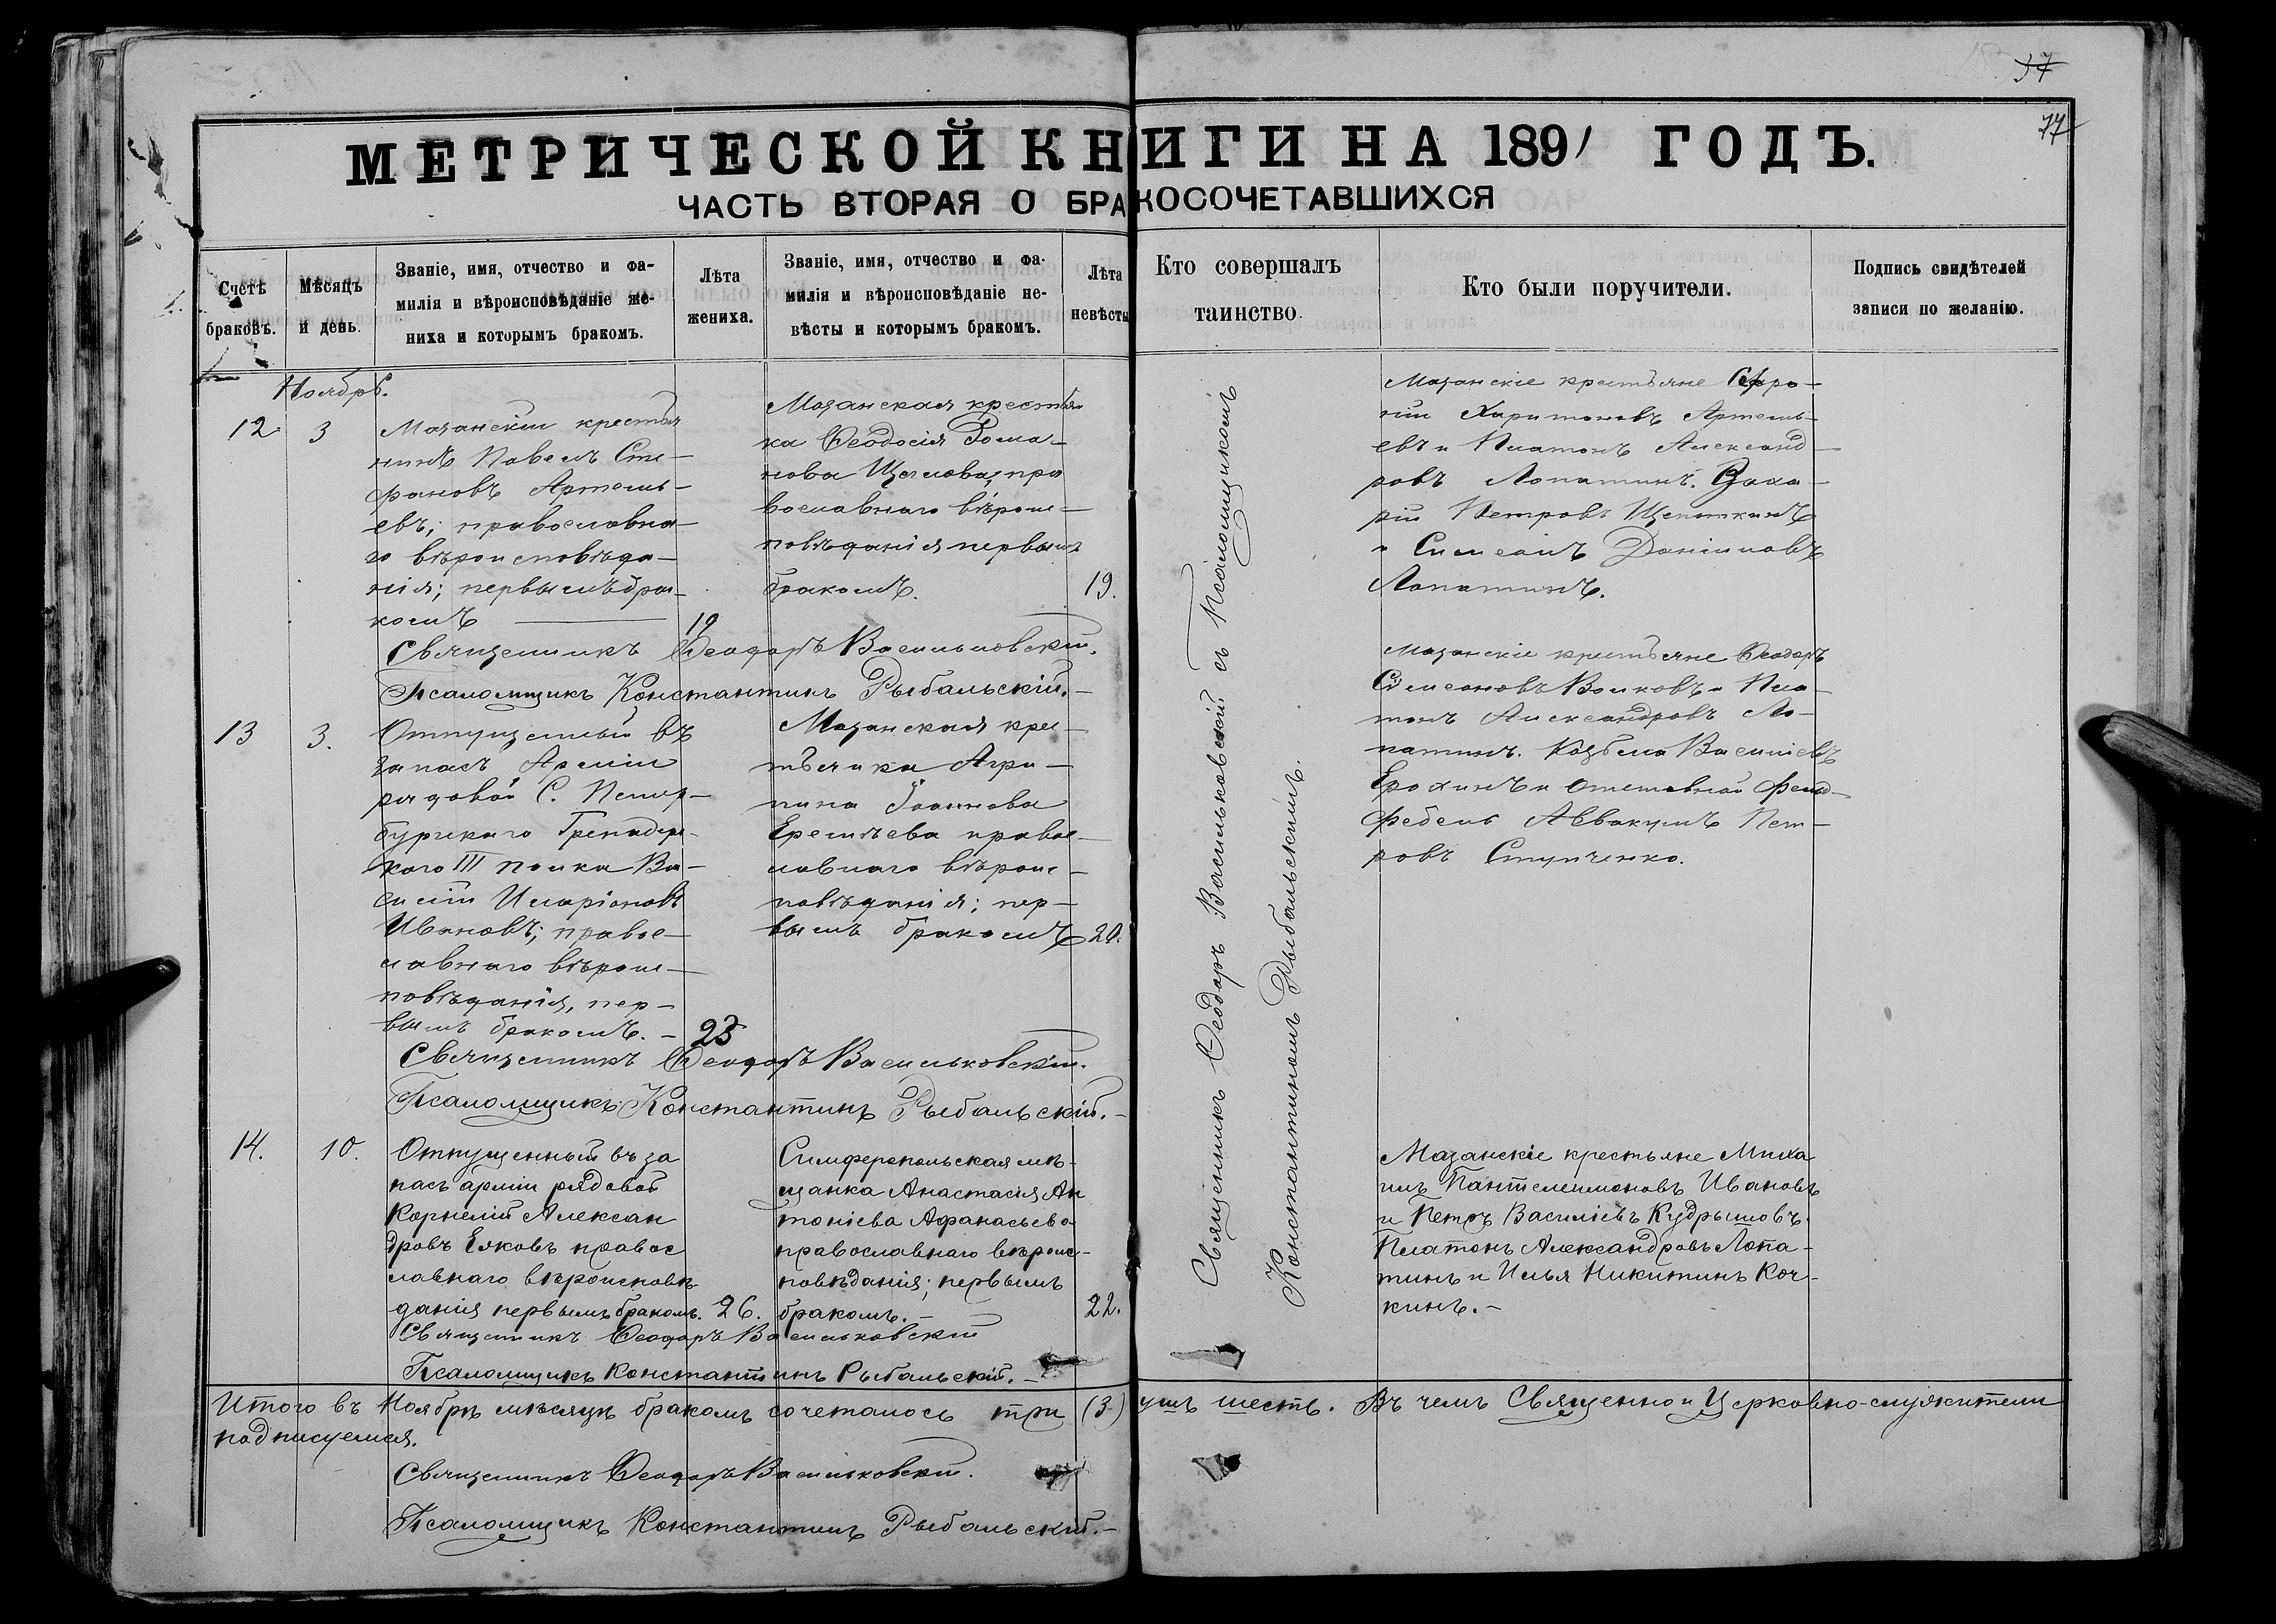 37
77
МЕТРИЧЕСКОЙ КНИГИ НА 1891 ГОДЪ.
ЧАСТЬ ВТОРАЯ О БРАКОСОЧЕТАВШИХСЯ
Счетъ
браковъ.
Мѣсяцъ
и день.
Званіе, имя, отчество и фа-
милія и вѣроисповѣданіе же-
ниха и которымъ бракомъ.
Лѣта
жениха.
Званіе, имя, отчество и фа-
милія и вѣроисповѣданіе не-
вѣсты и которымъ бракомъ.
Лѣта
невѣсты
Кто совершалъ
таинство.
Кто были поручители.
Подпись свидѣтелей
записи по желанію.
Ноябрь.
12
3
Мазанскій крестья
нинъ Павелъ Сте-
фановъ Артемь-
евъ; православна-
го вѣроисповѣда-
нія; первымъ бра-
комъ
19
Мазанская крестьян
ка Ѳеодосія Рома-
нова Щеглова, пра
вославнаго вѣроис-
повѣданія первымъ
бракомъ.
19.
Мазанскіе крестьяне Софро-
ній Харитоновъ Артемь-
евъ и Платонъ Александ-
ровъ Лопатинъ. Заха-
рій Петровъ Щепоткинъ
и Симеонъ Даніиловъ
Лопатинъ.
Священникъ Ѳеодоръ Васильковскій.
Псаломщикъ Константинъ Рыбальскій.-
13
3.
Отпущенный въ
запасъ Арміи
рядовой С. Петер-
бургскаго Гренадер-
скаго III полка Ва-
силій Иларіоновъ
Ивановъ; правос-
лавнаго вѣроис-
повѣданія, пер-
вымъ бракомъ. -
23
Мазанская крес-
тьянка Агри-
пина Іоаннова
Еремѣева правос-
лавнаго вѣроис-
повѣданія; пер-
вымъ бракомъ
20.
Мазанскіе крестьяне Ѳеодоръ
Симеоновъ Волковъ и Пла-
тонъ Александровъ Ло-
патинъ. Козьма Василіевъ
Ерохинъ и отставной фельд-
фебель Аввакумъ Пет-
ровъ Ступченко.
Священникъ Ѳеодоръ Васильковскій.
Псаломщикъ Константинъ Рыбальскій.-
14.
10.
Отпущенный въ за
пасъ арміи рядовой
Корнелій Алексан
дровъ Ежовъ правос
лавнаго вѣроисповѣ
данія первымъ бракомъ.
26.
Симферопольская мѣ-
щанка Анастасія Ан
тоніева Афанасьева
православнаго вѣроис-
повѣданія; первымъ
бракомъ. -
22.
Мазанскіе крестьяне Миха
илъ Пантелеимоновъ Ивановъ
и Петръ Василіевъ Кудрышовъ.
Платонъ Александровъ Лопа-
тинъ и Илья Никитинъ Коч-
кинъ. -
Священникъ Ѳеодоръ Васильковскій
Псаломщикъ Константинъ Рыбальскій. -
Священникъ Ѳеодоръ Васильковскій съ Псаломщикомъ
Константиномъ Рыбальскимъ.
Итого въ Ноябрѣ мѣсяцѣ бракомъ сочеталось три (3) душъ шесть. Въ чемъ Священно и Церковно-служители
подписуемся.
Священникъ Ѳеодоръ Васильковскій.
Псаломщикъ Константинъ Рыбальскій.-